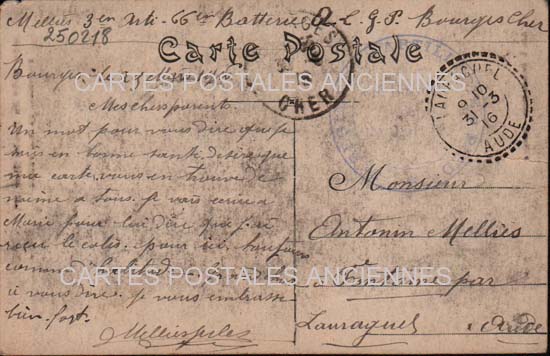 Mellies 3em Arti. 66em Batterie L. G. P. Bourges Cher
250218
Carte Postale
Bourges le
CARTES POSTALES ANCIENNES
CHER
LAURAGUEL
AUDE
10
3 -1
16
Mes chers parents
Un mot pour vous dire que je
suis en bonne santé désire que
ma carte vous en trouve de
même a tous. je vais
Marie pour lui dire que j'ai
reçu le colis. pour ici toujours
comme d'habitude
CARTES POSTALES ANCIENNES
à vous dire. je vous embrasse
bien fort.
Mellies
Monsieur
Antonin Mellies
par
Lauraguel Aude